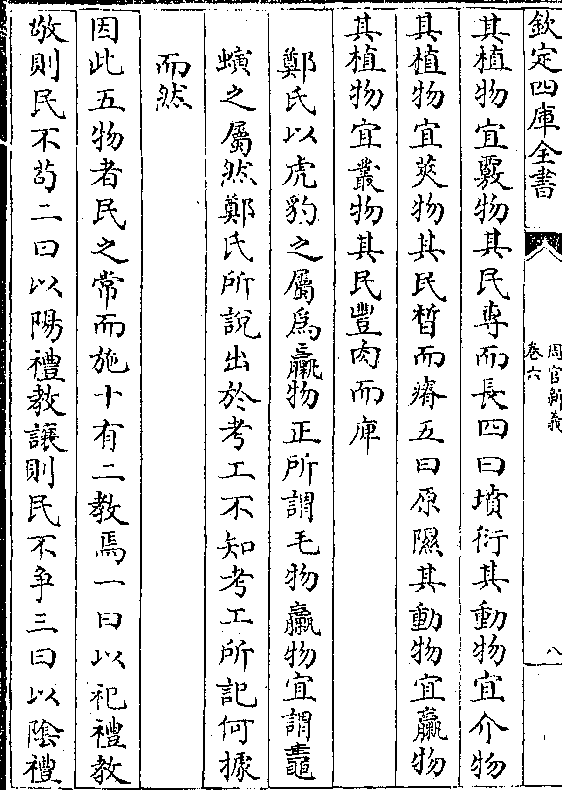 欽定四庫全書
周官新義
卷六
八
其植物宜覈物其民專而長四曰墳衍其動物宜介物
其植物宜莢物其民晳而瘠五曰原隰其動物宜臝物
其植物宜叢物其民豐肉而庳
鄭氏以虎豹之屬為臝物正所謂毛物臝物宜謂鼃
蟥之屬然鄭氏所說出於考工不知考工所記何據
而然
因此五物者民之常而施十有二教焉一曰以祀禮教
敬則民不茍二曰以陽禮教讓則民不爭三曰以陰禮